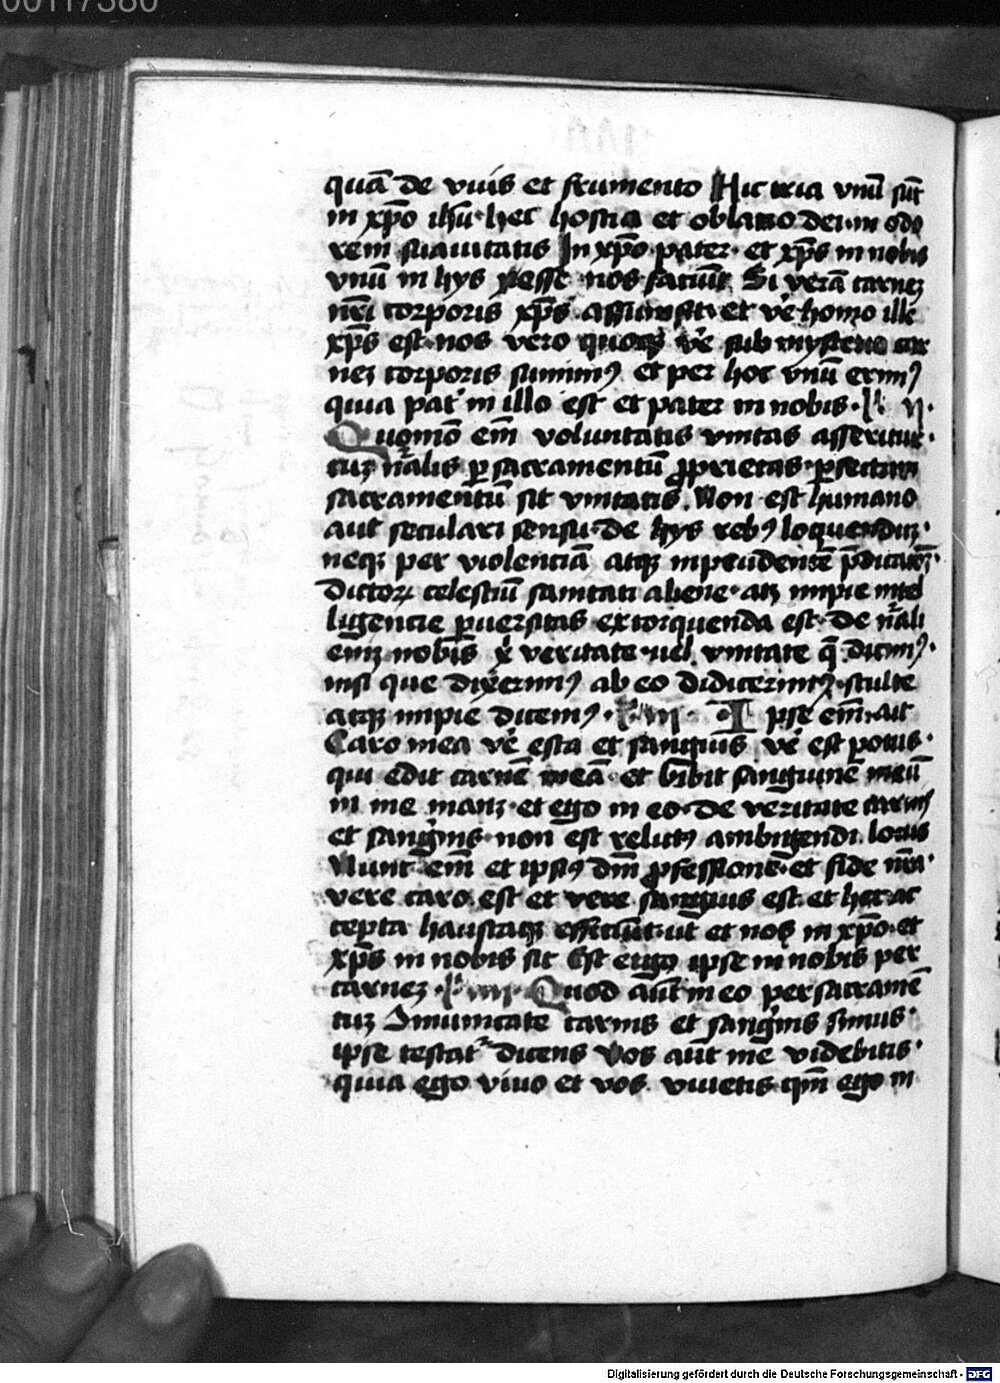 00117380
quā de vuis et frumento Hic tria vnū sūt
in xp̄o ih̄u · hec hostia et oblatio dei · in odo
rem suauitatis In xp̄o pater · et xp̄s in nobis
vnū in hys nos faciūt Si verā carnez
nr̄i corporis xp̄s assumpsit · et ve̓ homo ille
xp̄s est · nos vero quoqꝫ ve̓ sub mysterio car
nez corporis sumimꝰ et per hoc vnū erimꝰ
quia pat̓ in illo est et pater in nobis ·
Quomō em̄ voluntatis vnitas asseritur ·
cuꝫ nr̄alis ꝑ sacramentū ꝓprietas · ꝑfectum
sacramentū sit vnitatis · Non est humano
aut seculari sensu · de hys rebꝰ loquenduꝫ ·
neqꝫ per violenciā atqꝫ inpudentē p̄dicatōeꝫ ·
Dictoꝝ celestiū sanitati aliene · atqꝫ impie intel
ligencie ꝑuersitas extorquenda est · De nr̄ali
eniꝫ nobis veritate · uel vnitate q̄ dicimꝰ ·
nisi que dixerimꝰ ab eo didicerimꝰ · stulte
atqꝫ impie dicemꝰ · Ipse em̄ · ait
Caro mea ve̓ esca et sanguis ve̓ est potus ·
qui edit carnē meā · et bibit sanguinē meū
in me manꝫ · et ego in eo · de veritate carnis
et sang̓nis · non est relictꝰ ambigendi locus
Nunc em̄ et ipsiꝰ dn̄i ꝓfessionē · et fide nr̄a ·
vere caro est et vere sanguis est et hec ac
cepta haustaqꝫ efficiūt · ut et nos in xp̄o · et
xp̄s in nobis sit Est ergo ipse in nobis per
carnez · Quod aūt in eo per sacramē
tuꝫ 9municate carnis et sang̓nis simus ·
ipse testat᷑ dicens Vos aūt me videbitis ·
quia ego viuo et vos viuetis qm̄ ego in
Digitalisierung gefördert durch die Deutsche Forschungsgemeinschaft - DFG